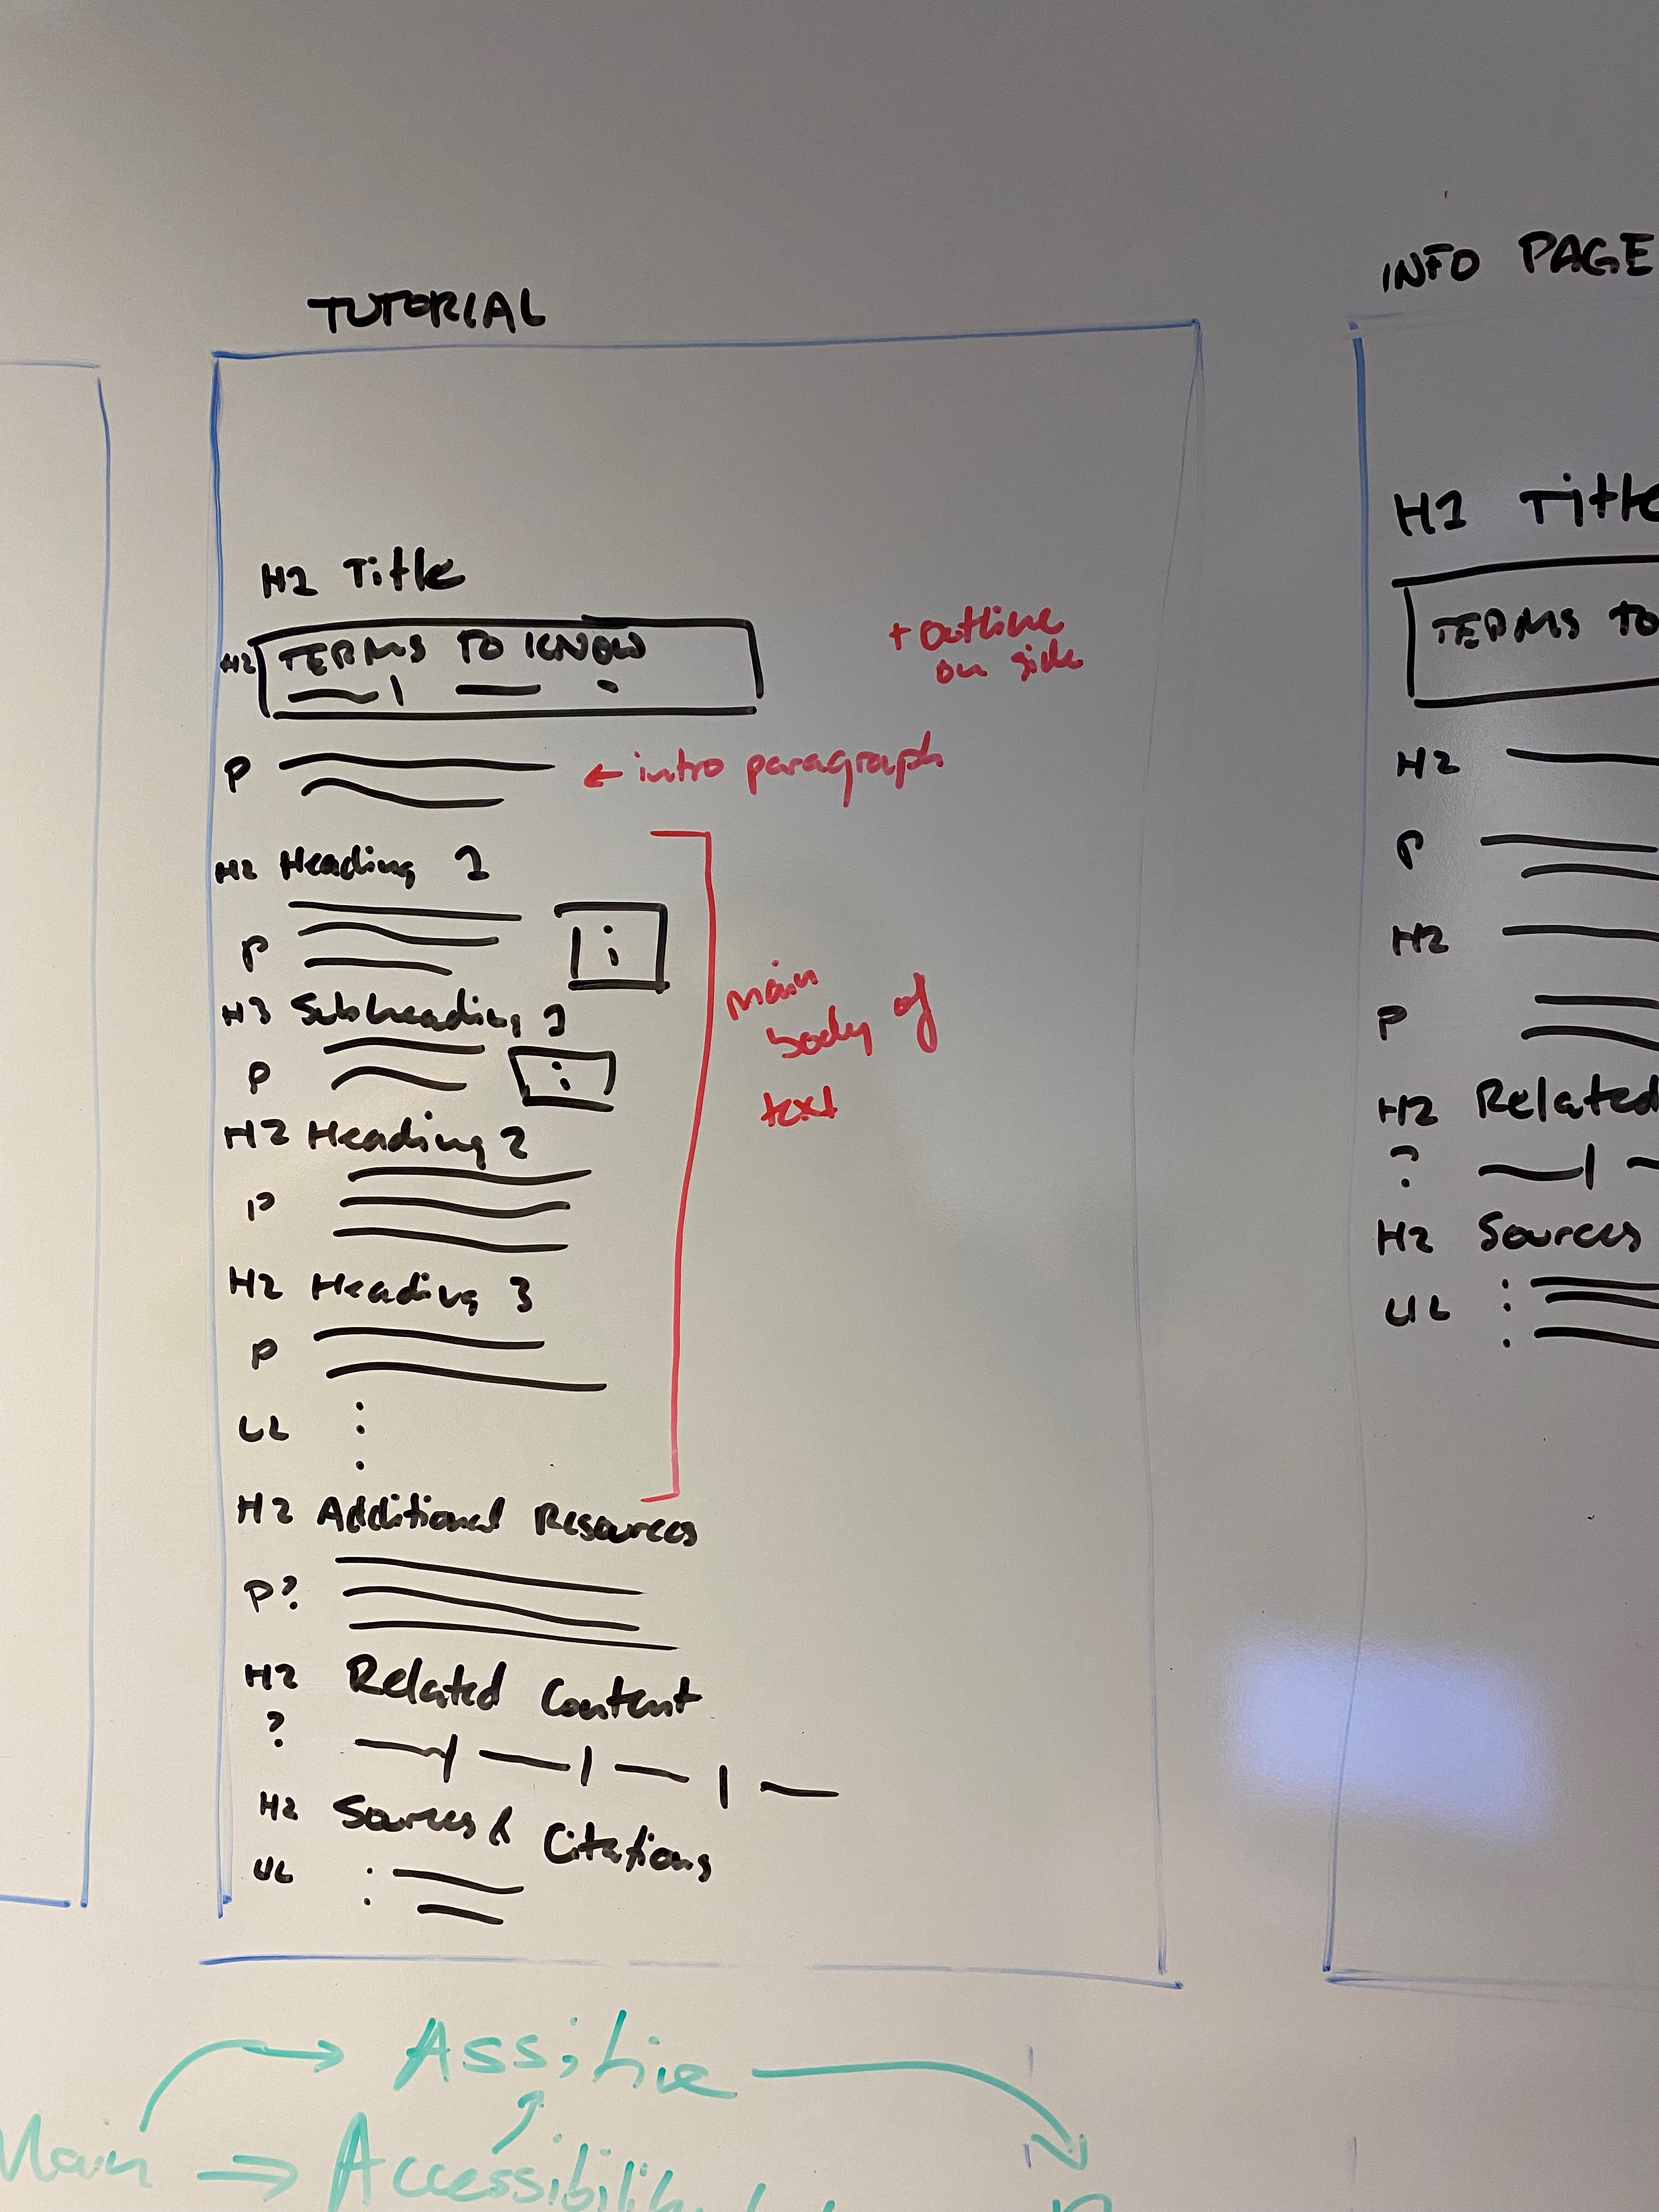 TUTORIAL
H1 Title
H2 TERMS TO KNOW
+ outline
on side
P
← intro paragraph
H2 Heading 1
P
i
H3 Subheading 1
P
i
main
body of
text
H2 Heading 2
P
H2 Heading 3
P
UL
H2 Additional Resources
P?
H2 Related Content
?
H2 Sources & Citations
UL
INFO PAGE
H1 Title
TERMS TO
H2
P
H2
P
H2 Related
?
H2 Sources
UL
→ Assitive
Main → Accessibility